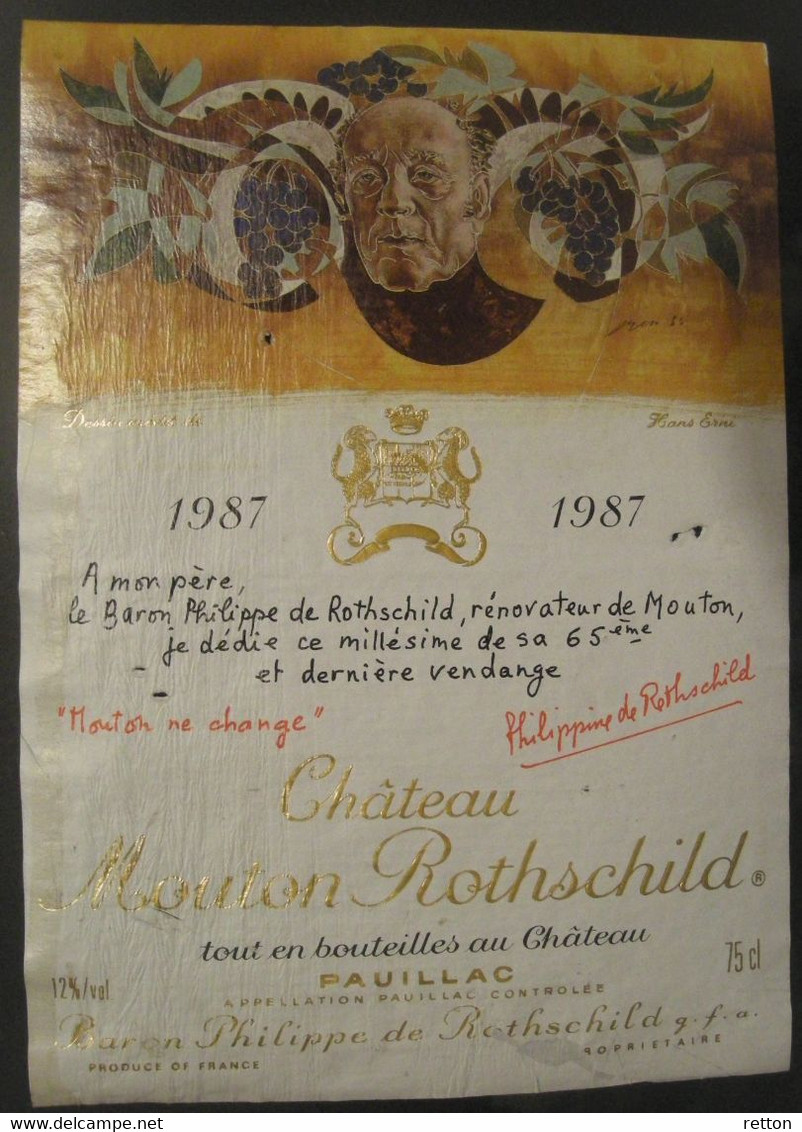 Dessin inédit de
Hans Erni
1987
1987
A mon père,
le Baron Philippe de Rothschild, rénovateur de Mouton,
je dédie ce millésime de sa 65ème
et dernière vendange
"Mouton ne change"
Philippine de Rothschild
Château
Mouton Rothschild ®
tout en bouteilles au Château
PAUILLAC
12%/vol
75 cl
APPELLATION PAUILLAC CONTROLÉE
Baron Philippe de Rothschild g.f.a.
PRODUCE OF FRANCE
PROPRIETAIRE
Hosted by delcampe.net
retton